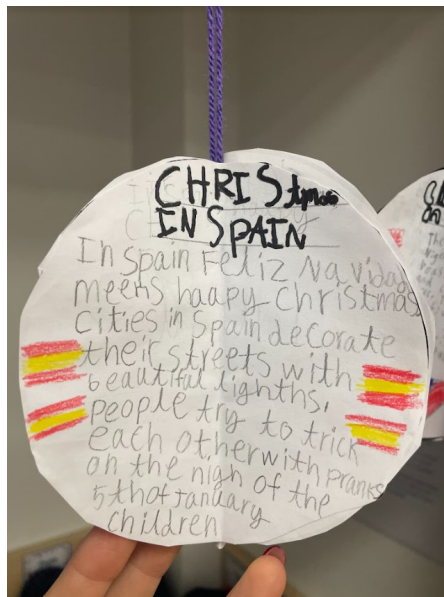 CHRIStmas
IN SPAIN
In Spain Feliz Navidad
meens haapy Christmas
Cities in Spain decorate
their streets with
beautiful lighths,
people try to trick
each other with pranks
on the nigh of the
5th of January
children